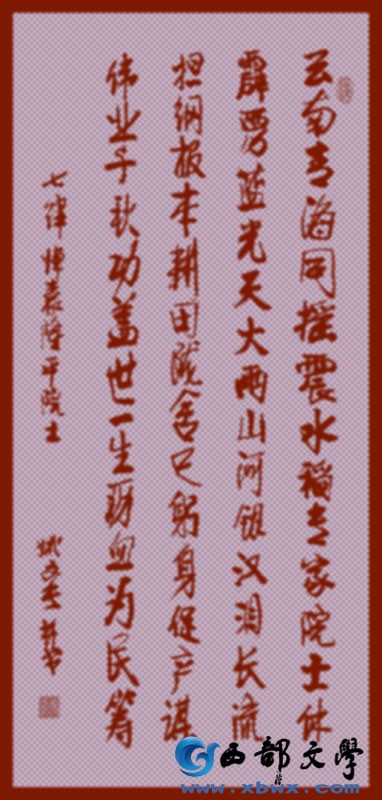 云南青海同摇震水稻专家院士休
霹雳蓝光天大雨山河银汉泪长流
担纲报本耕田陇舍己躬身促产谋
伟业千秋功盖世一生沥血为民筹
七律悼袁隆平院士
西部文學
www.xbwx.cn